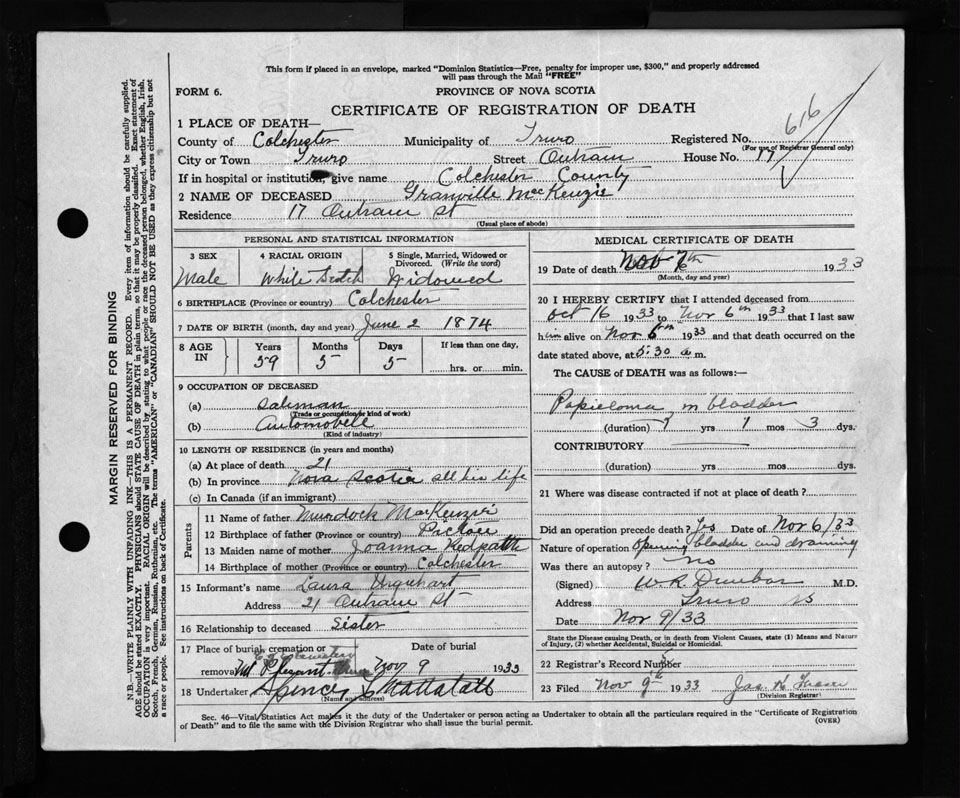 This form if placed in an envelope, marked "Dominion Statistics—Free, penalty for improper use, $300," and properly addressed
will pass through the Mail "FREE"
FORM 6.
PROVINCE OF NOVA SCOTIA
CERTIFICATE OF REGISTRATION OF DEATH
616
1 PLACE OF DEATH—
County of Colchester Municipality of Truro Registered No.
(For use of Registrar General only)
City or Town Truro Street Outram House No. 17
If in hospital or institution, give name Colchester County
2 NAME OF DECEASED Granville MacKenzie
Residence 17 Outram St
(Usual place of abode)
PERSONAL AND STATISTICAL INFORMATION
3 SEX 4 RACIAL ORIGIN 5 Single, Married, Widowed or
Divorced. (Write the word)
Male White Scotch Widowed
6 BIRTHPLACE (Province or country) Colchester
7 DATE OF BIRTH (month, day and year) June 2 1874
8 AGE IN Years Months Days If less than one day,
59 5 5 hrs. or min.
9 OCCUPATION OF DECEASED
(a) Salsman
(Trade or occupation or kind of work)
(b) Automobell
(Kind of industry)
10 LENGTH OF RESIDENCE (in years and months)
(a) At place of death 21
(b) In province Nova Scotia all his life
(c) In Canada (if an immigrant)
Parents
11 Name of father Murdock MacKenzie
12 Birthplace of father (Province or country) Pictou
13 Maiden name of mother Joanna Redpath
14 Birthplace of mother (Province or country) Colchester
15 Informant's name Laura Urquhart
Address 21 Outram St
16 Relationship to deceased Sister
17 Place of burial, cremation or Date of burial
removal Mt Plesant Nov 9 1933
18 Undertaker Spencer & Mattatall
(Name and address)
MEDICAL CERTIFICATE OF DEATH
19 Date of death Nov 7th 1933
(Month, day and year)
20 I HEREBY CERTIFY that I attended deceased from
Oct 16 1933 to Nov 6th 1933 that I last saw
him alive on Nov 6th 1933 and that death occurred on the
date stated above, at 5:30 a m.
The CAUSE of DEATH was as follows:—
Papilloma in bladder
(duration) yrs 1 mos 3 dys.
CONTRIBUTORY
(duration) yrs. mos. dys.
21 Where was disease contracted if not at place of death?
Did an operation precede death? Yes Date of Nov 6/33
Nature of operation Opening bladder and draining
Was there an autopsy? no
(Signed) W.R. Dunbar M.D.
Address Truro NS
Date Nov 9/33
State the Disease causing Death, or in death from Violent Causes, state (1) Means and Nature
of Injury, (2) whether Accidental, Suicidal or Homicidal.
22 Registrar's Record Number
23 Filed Nov 9th 1933 Jas. K Fraser
(Division Registrar)
Sec. 46—Vital Statistics Act makes it the duty of the Undertaker or person acting as Undertaker to obtain all the particulars required in the "Certificate of Registration
of Death" and to file the same with the Division Registrar who shall issue the burial permit. (OVER)
MARGIN RESERVED FOR BINDING
N.B.—WRITE PLAINLY WITH UNFADING INK—THIS IS A PERMANENT RECORD. Every item of information should be carefully supplied.
AGE should be stated EXACTLY. PHYSICIANS should STATE CAUSE OF DEATH in plain terms, so that it may be properly classified. Exact statement of
OCCUPATION is very important. RACIAL ORIGIN will be described by stating to what people or race the deceased person belonged, whether English, Irish,
Scotch, French, German, Russian, Ruthenian, etc. The terms "AMERICAN" or "CANADIAN" SHOULD NOT BE USED as they express citizenship but not
a race or people. See instructions on back of Certificate.